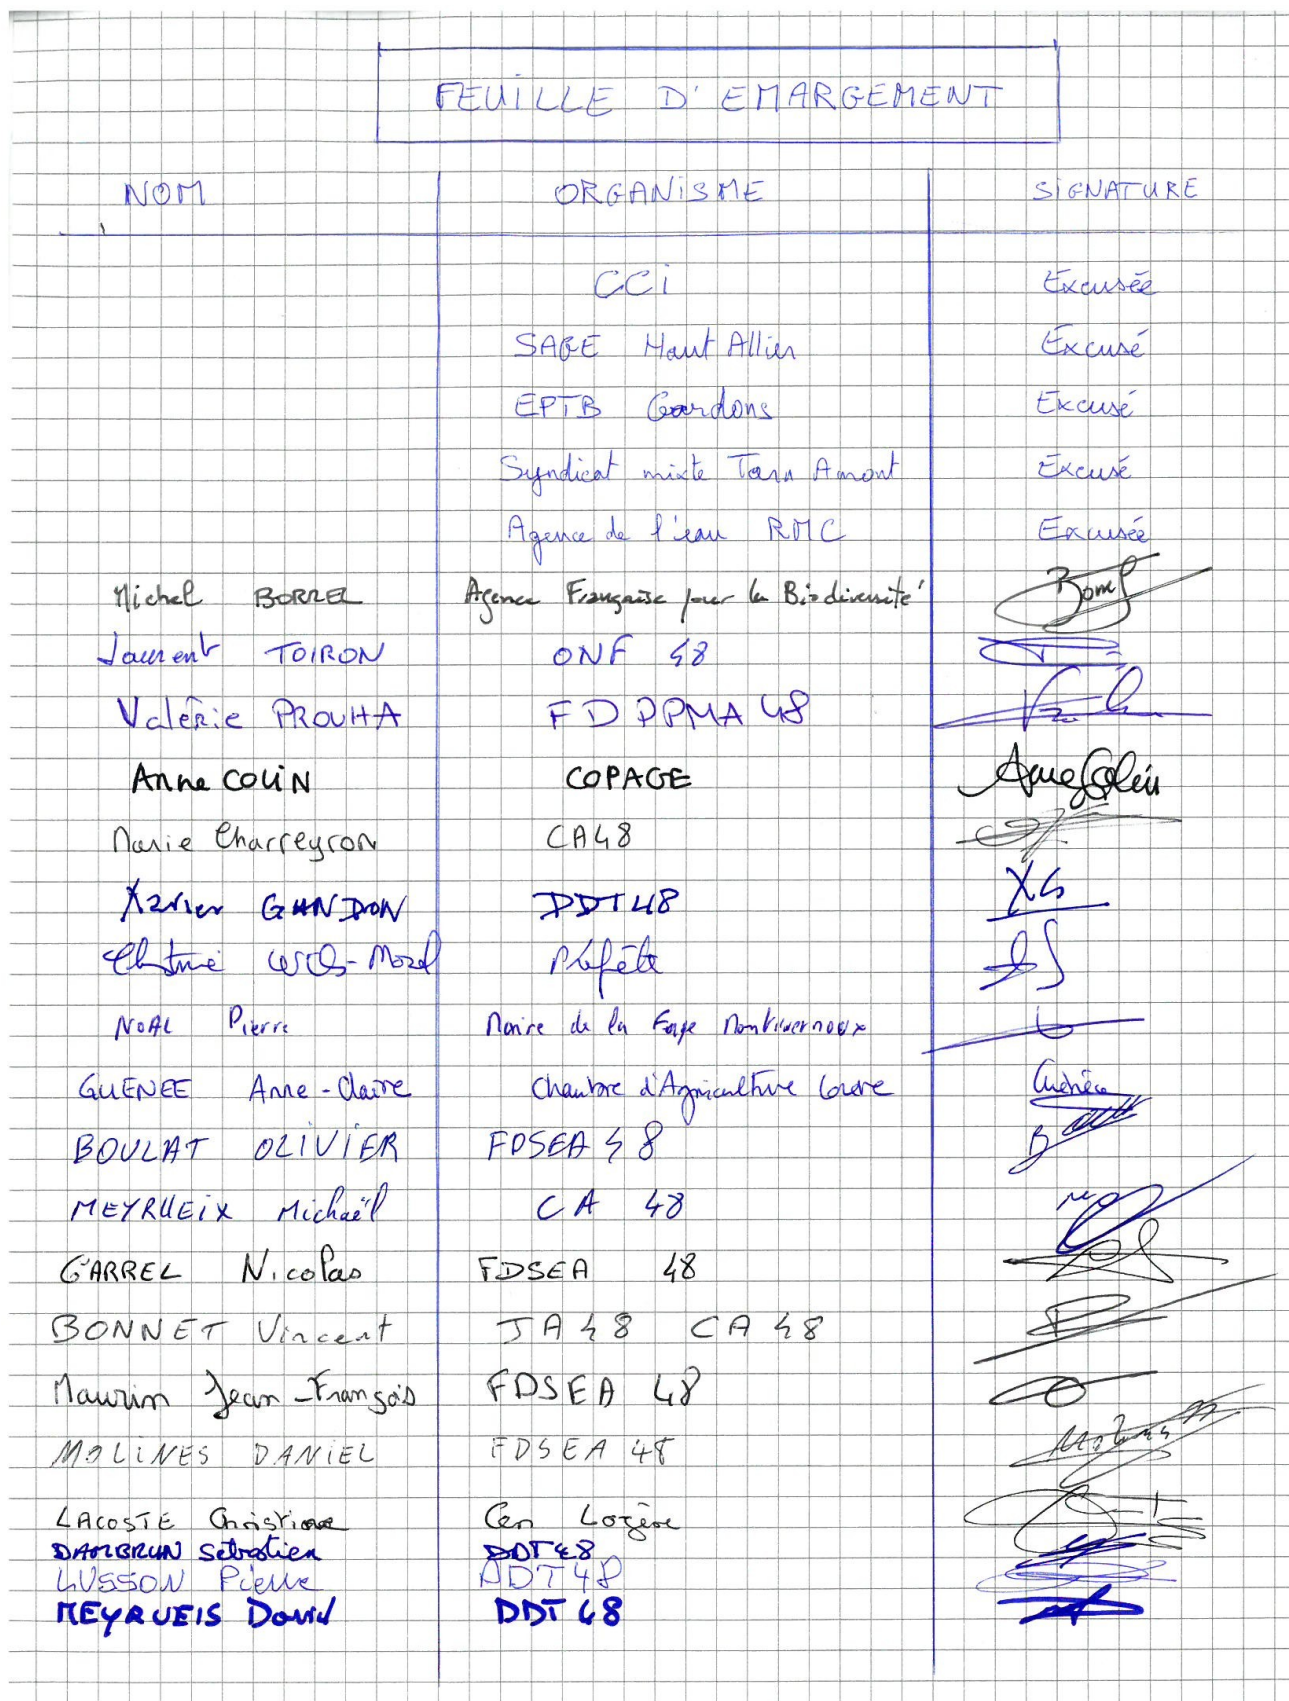 FEUILLE D'EMARGEMENT
NOM ORGANISME SIGNATURE
CCi Excusée
SAGE Haut Allier Excusé
EPTB Gardons Excusé
Syndicat mixte Tarn Amont Excusé
Agence de l'eau RMC Excusée
Michel BORREL Agence Française pour la Biodiversité Borrel
Laurent TOIRON ONF 48
Valérie PROUHA FDPPMA 48
Anne COLIN COPAGE Anne Colin
Marie Charreyron CA48
Xavier GANDON DDT48 XG
Préfète
NOAL Pierre Maire de la Fage Montivernoux
GUENEE Anne-Claire Chambre d'Agriculture Lozère Guénée
BOULAT OLIVIER FDSEA 48
MEYRUEIX Michaël CA 48
GARREL Nicolas FDSEA 48
BONNET Vincent JA48 CA 48
Maurin Jean-François FDSEA 48
MOLINES DANIEL FDSEA 48 Molines
LACOSTE Christiane Cen Lozère
DAMBRUN Sébastien DDT48
LUSSON Pierre DDT48
MEYRUEIS David DDT 48